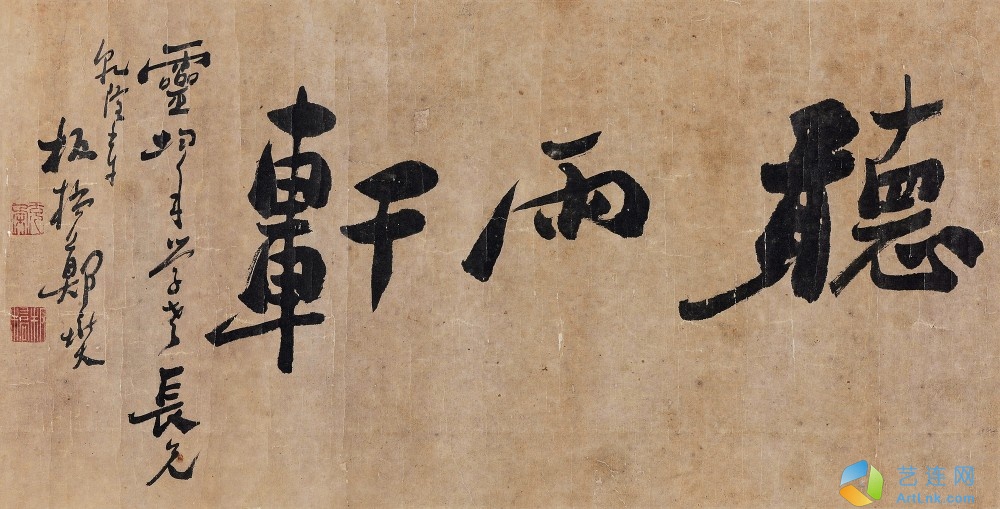 聽雨軒
靈均年學老長兄
乾隆
板橋鄭燮
艺连网
ArtLnk.com